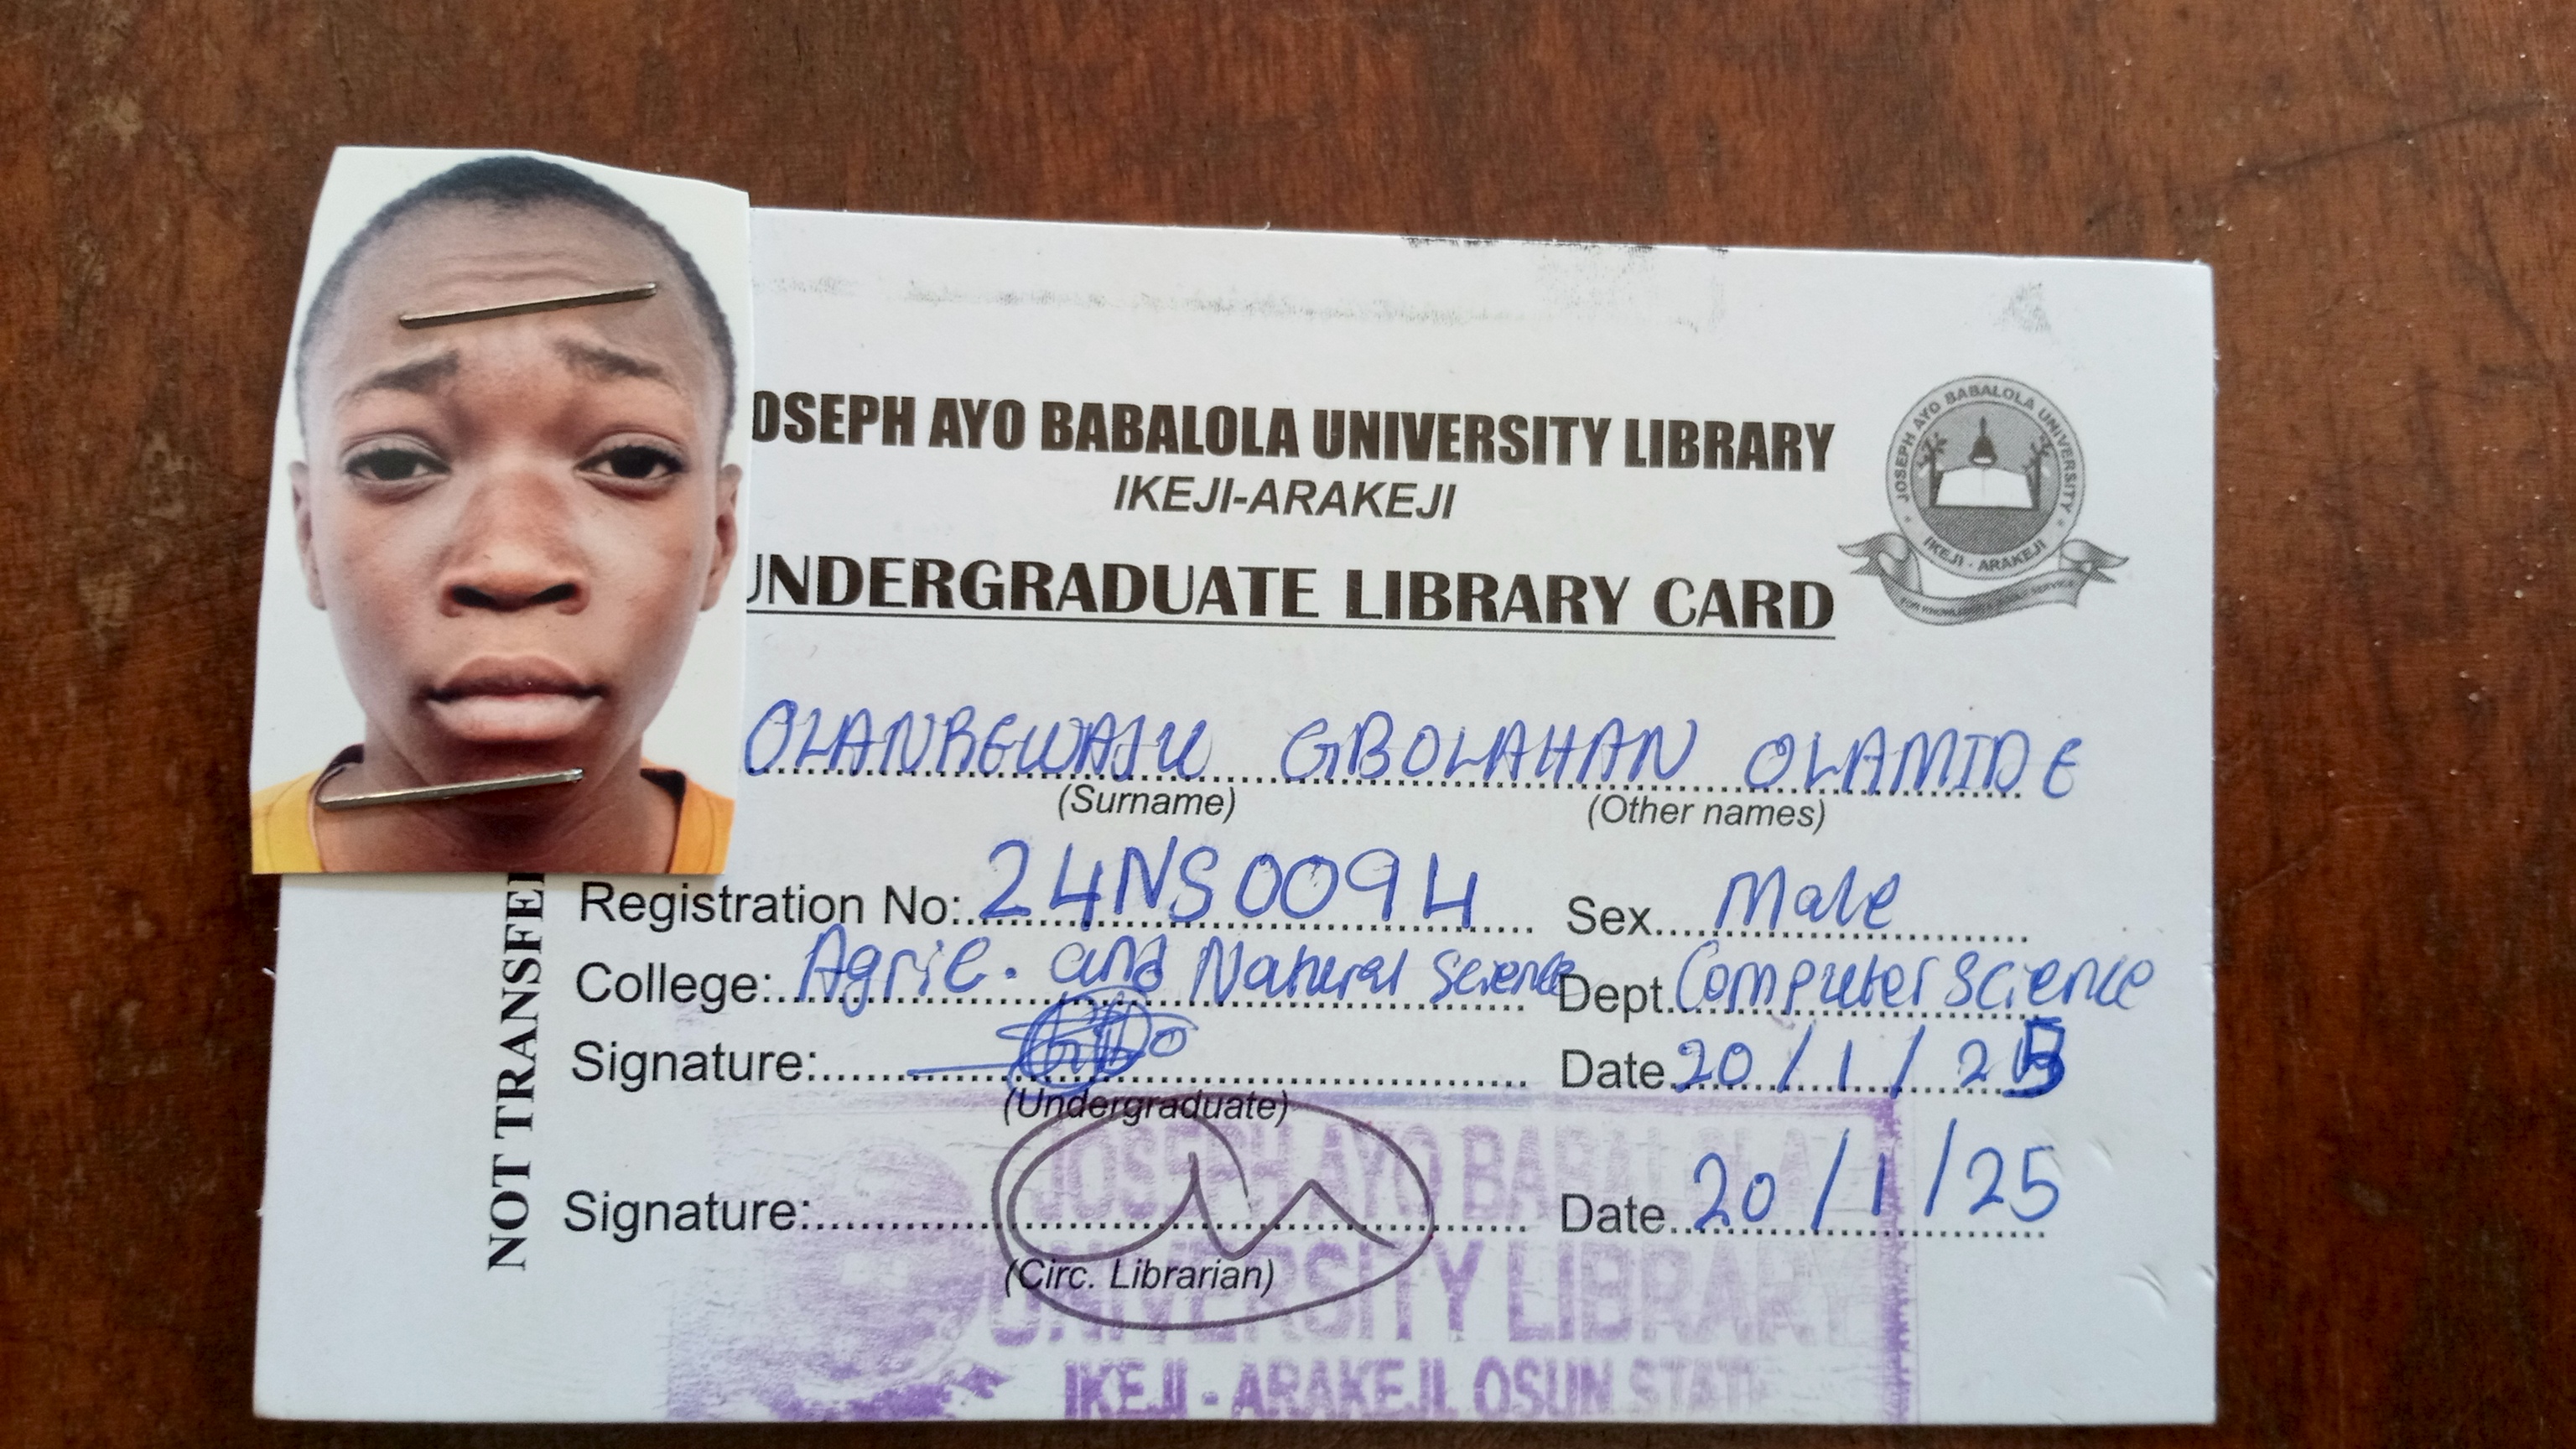 OSEPH AYO BABALOLA UNIVERSITY LIBRARY
IKEJI-ARAKEJI
UNDERGRADUATE LIBRARY CARD
JOSEPH AYO BABALOLA UNIVERSITY
IKEJI - ARAKEJI
OLANREWAJU GBOLAHAN OLAMIDE
(Surname) (Other names)
Registration No: 24NS0094 Sex Male
College: Agric. and Natural Science Dept. Computer Science
Signature: Date 20/1/25
(Undergraduate)
Signature: Date 20/1/25
(Circ. Librarian)
NOT TRANSFE
JOSEPH AYO BABALOLA
UNIVERSITY LIBRARY
IKEJI - ARAKEJI, OSUN STATE